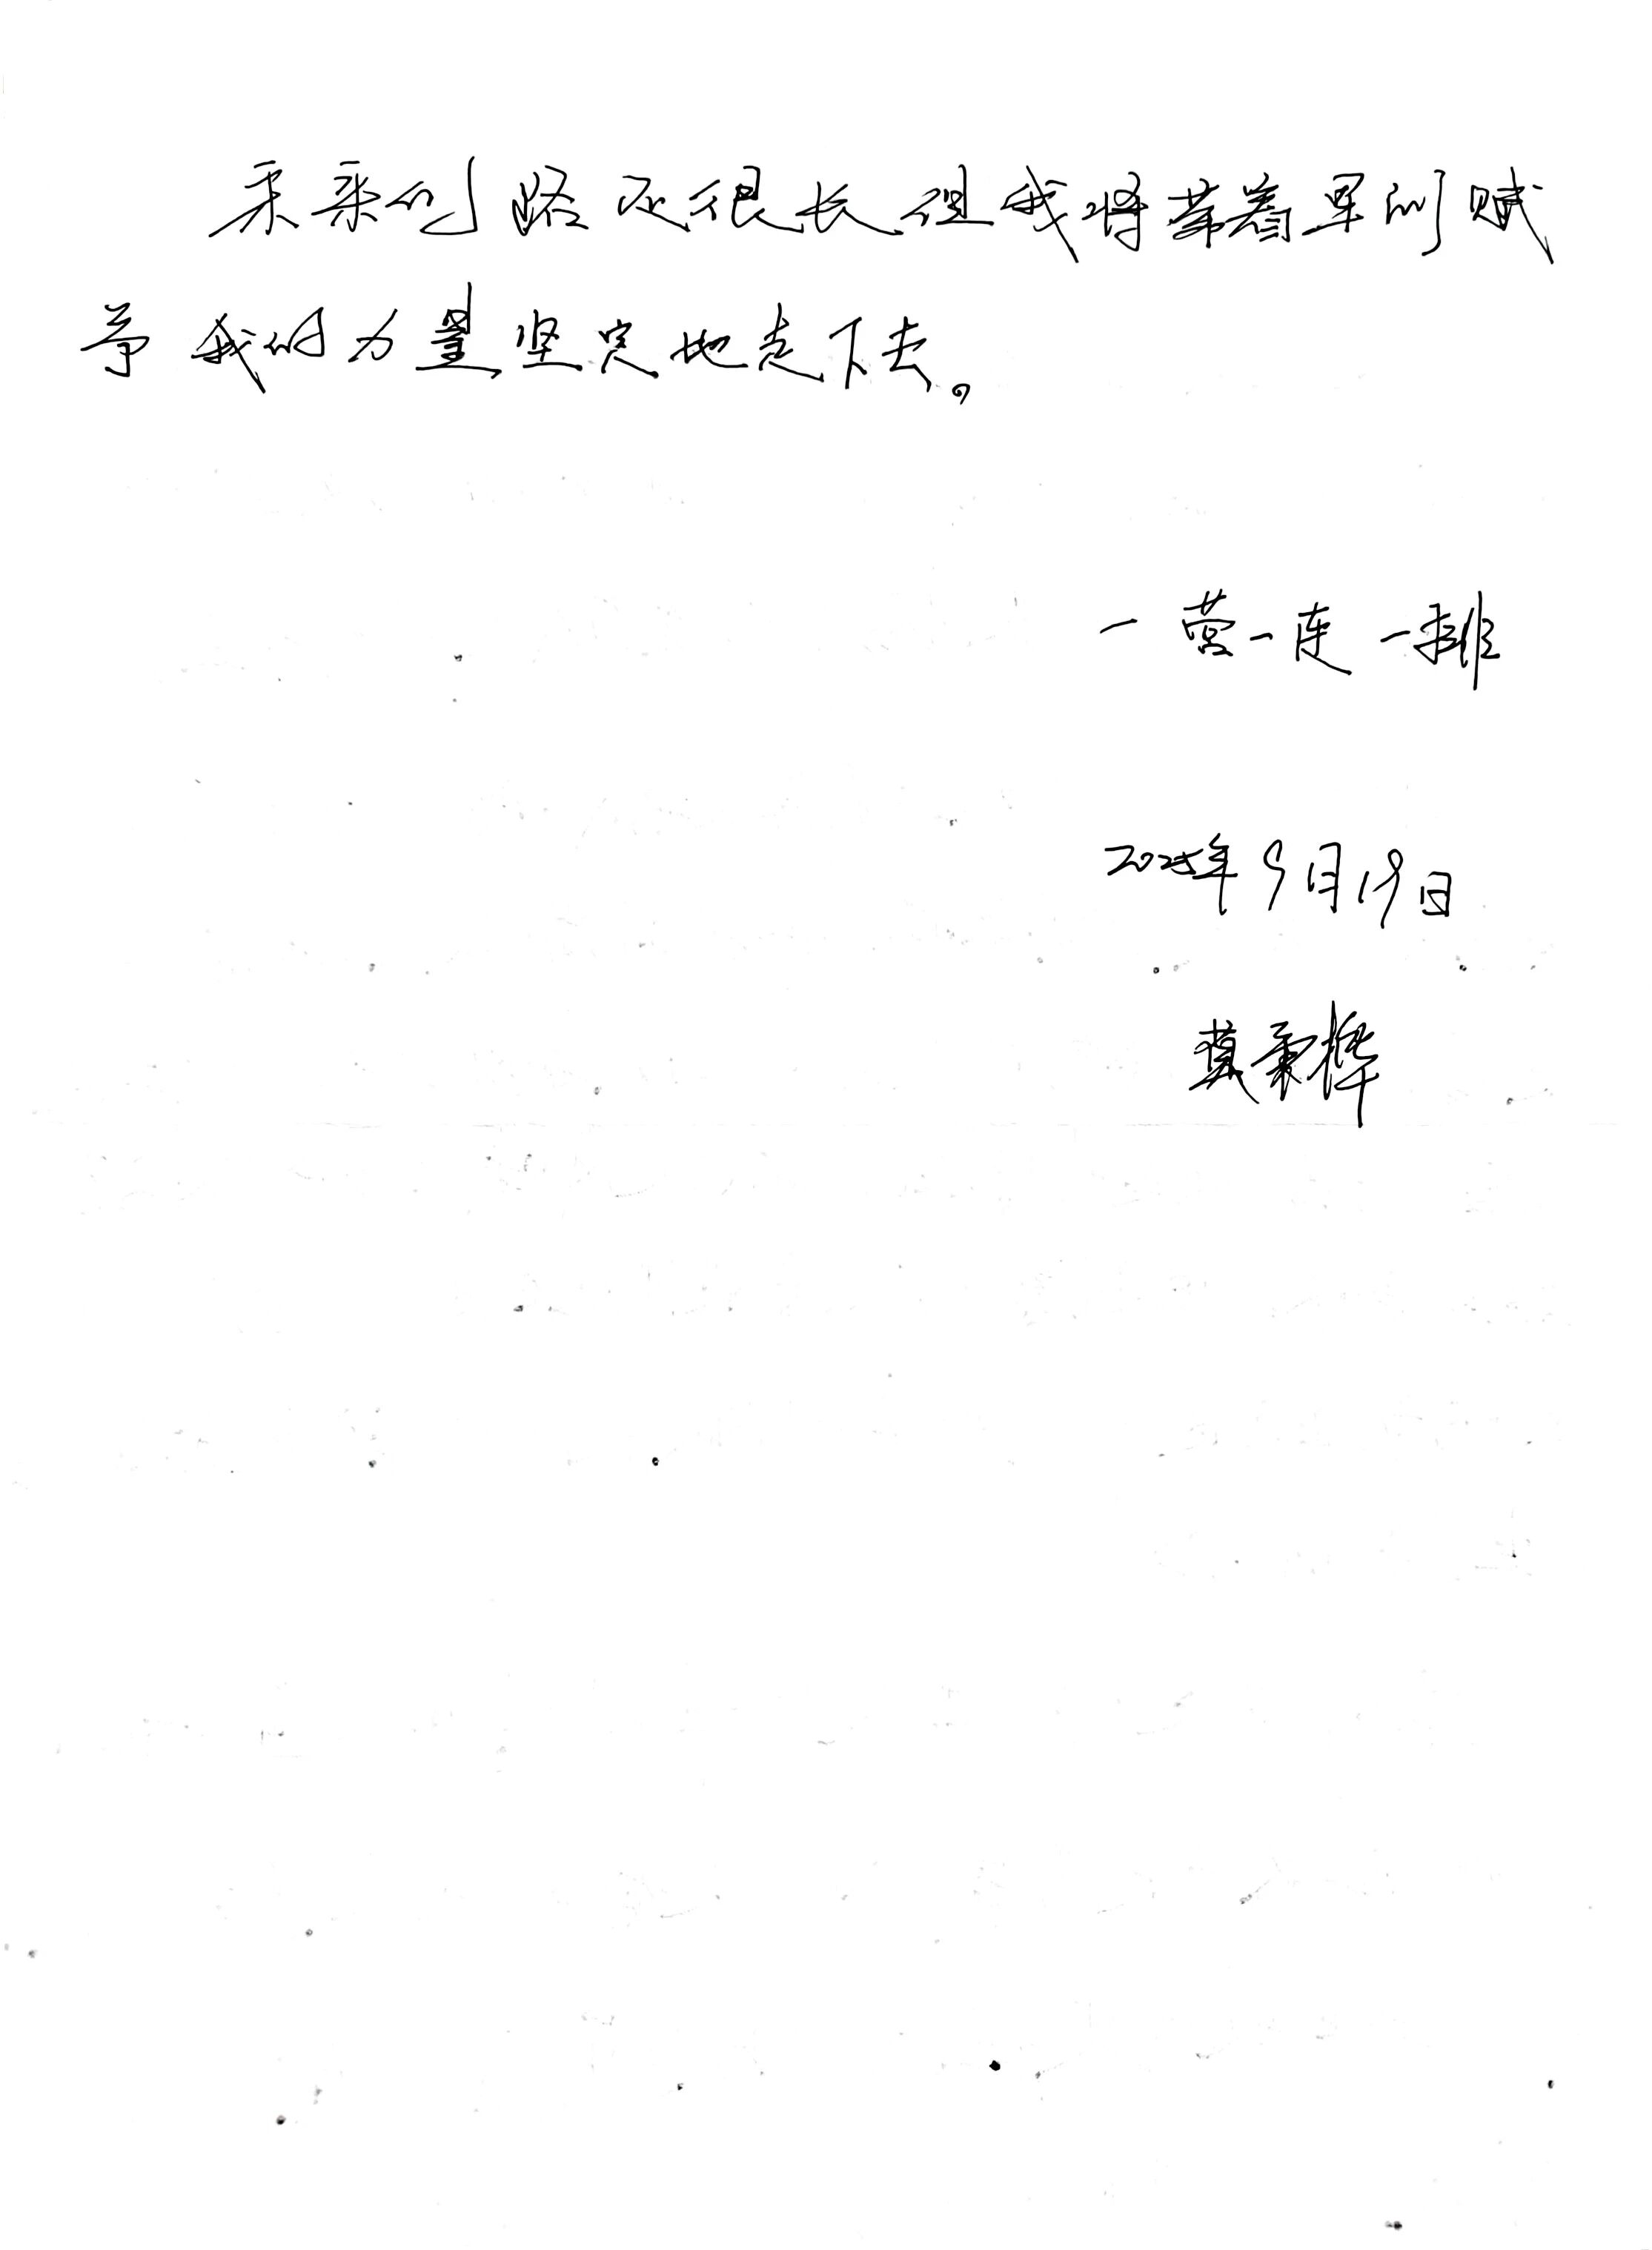 未来的路还很长,但我将带着军训赋
予我的力量,坚定地走下去。
一营一连一排
2025年9月19日
莫秉桦